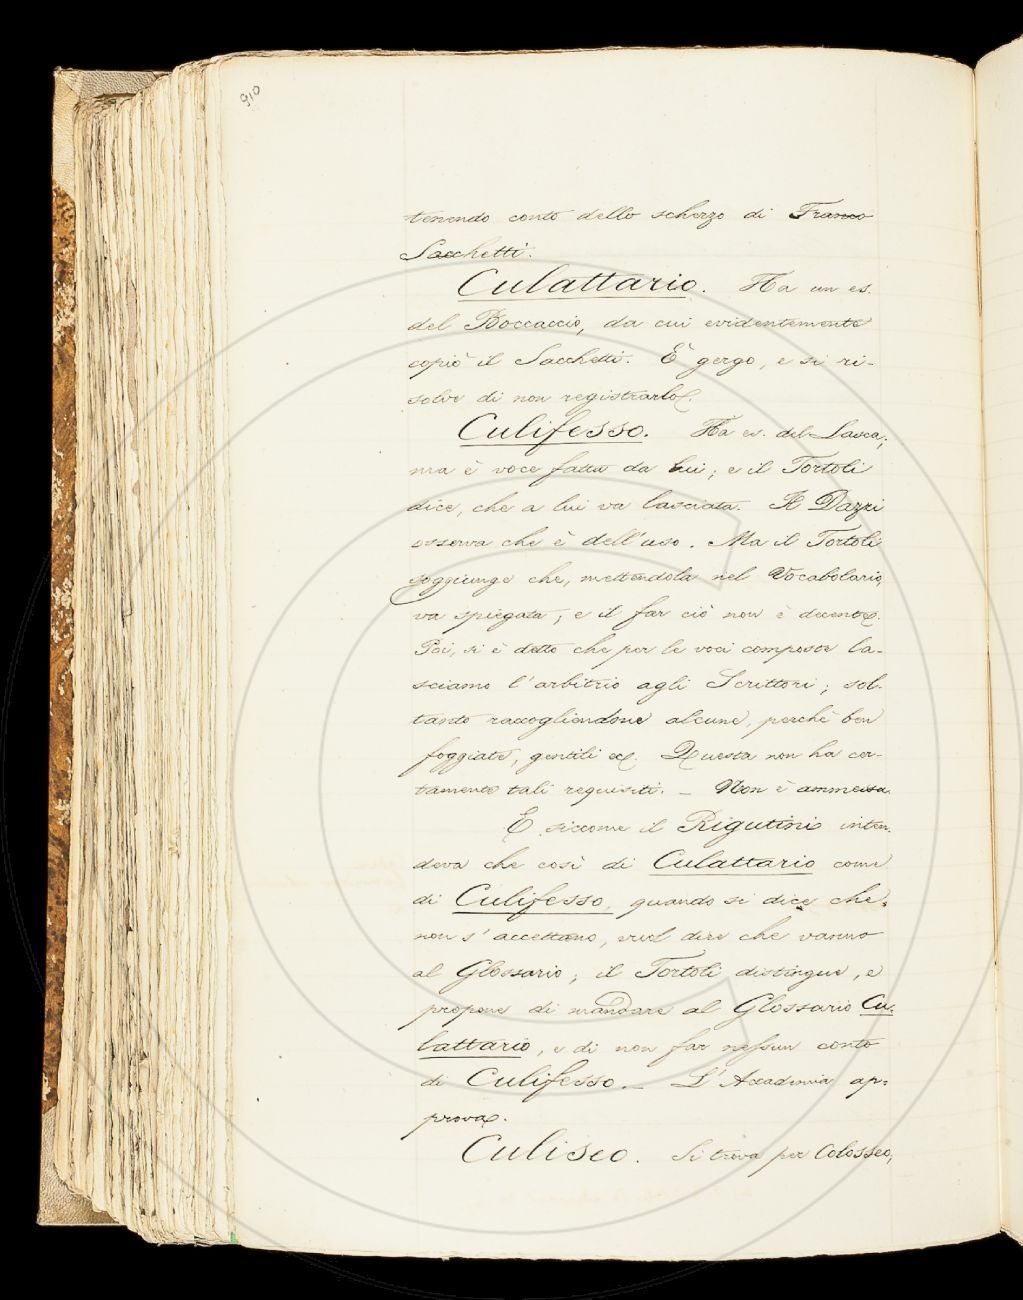 910
tenendo conto dello scherzo di Franco
Sacchetti.
Culattario. Ha un es.
del Boccaccio, da cui evidentemente
copiò il Sacchetti. È gergo, e si ri-
solve di non registrarlo.
Culifesso. Ha es. del Lasca,
ma è voce fatta da lui; e il Tortoli
dice, che a lui va lasciata. Il Dazzi
osserva che è dell'uso. Ma il Tortoli
soggiunge che, mettendola nel Vocabolario,
va spiegata; e il far ciò non è decente.
Poi, si è detto che per le voci composte la-
sciamo l'arbitrio agli Scrittori; sol-
tanto raccogliendone alcune, perchè ben
foggiate, gentili ec. Questa non ha cer-
tamente tali requisiti. – Non è ammessa.
E siccome il Rigutini inten-
deva che così di Culattario come
di Culifesso, quando si dice che
non s'accettano, vuol dire che vanno
al Glossario; il Tortoli distingue, e
propone di mandare al Glossario Cu-
lattario, e di non far nessun conto
di Culifesso. – L'Accademia ap-
prova.
Culiseo. Si trova per Colosseo,